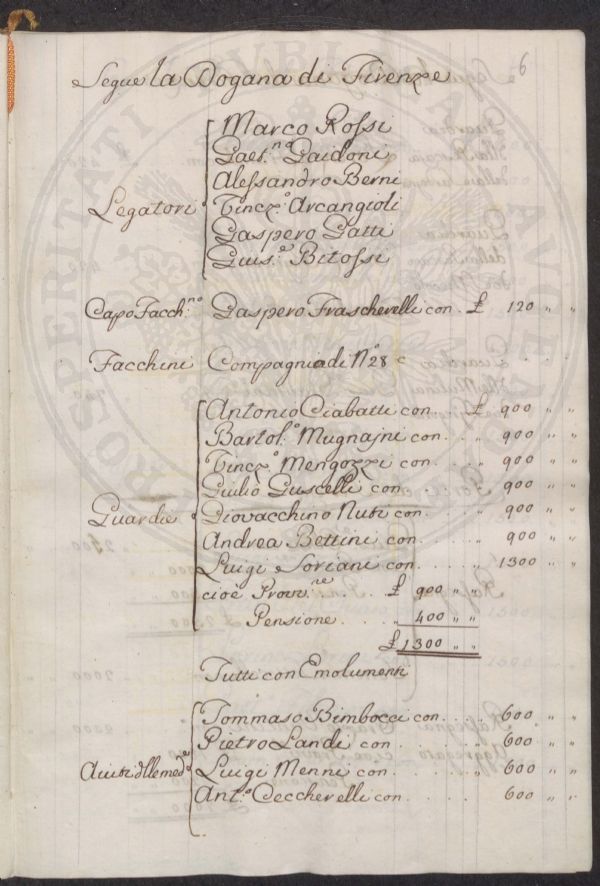 6
Segue la Dogana di Firenze
Marco Rossi
Gaet.no Gaidoni
Alessandro Berni
Legatori Vincz.o Arcangioli
Gaspero Gatti
Gius.e Bitossi
Capo Facch.no Gaspero Frascherelli con . £ 120 " "
Facchini Compagnia di N.o 28 c
Antonio Ciabatti con . . £ 900 " "
Bartol.o Mugnajni con . . " 900 " "
Vincz.o Mengozzi con . . " 900 " "
Giulio Guscelli con . . . " 900 " "
Guardie Giovacchino Nuti con . . . " 900 " "
Andrea Bettini con . . . " 900 " "
Luigi Soriani con . . . " 1300 " "
cioè Provv.ne . . . £ 900 " "
Pensione . . . " 400 " "
£ 1300 " "
Tutti con Emolumenti
Tommaso Bimbocci con . . " 600 " "
Pietro Landi con . . . " 600 " "
Aiuti alle med.e Luigi Menni con . . . " 600 " "
Ant.o Ceccherelli con . . . " 600 " "